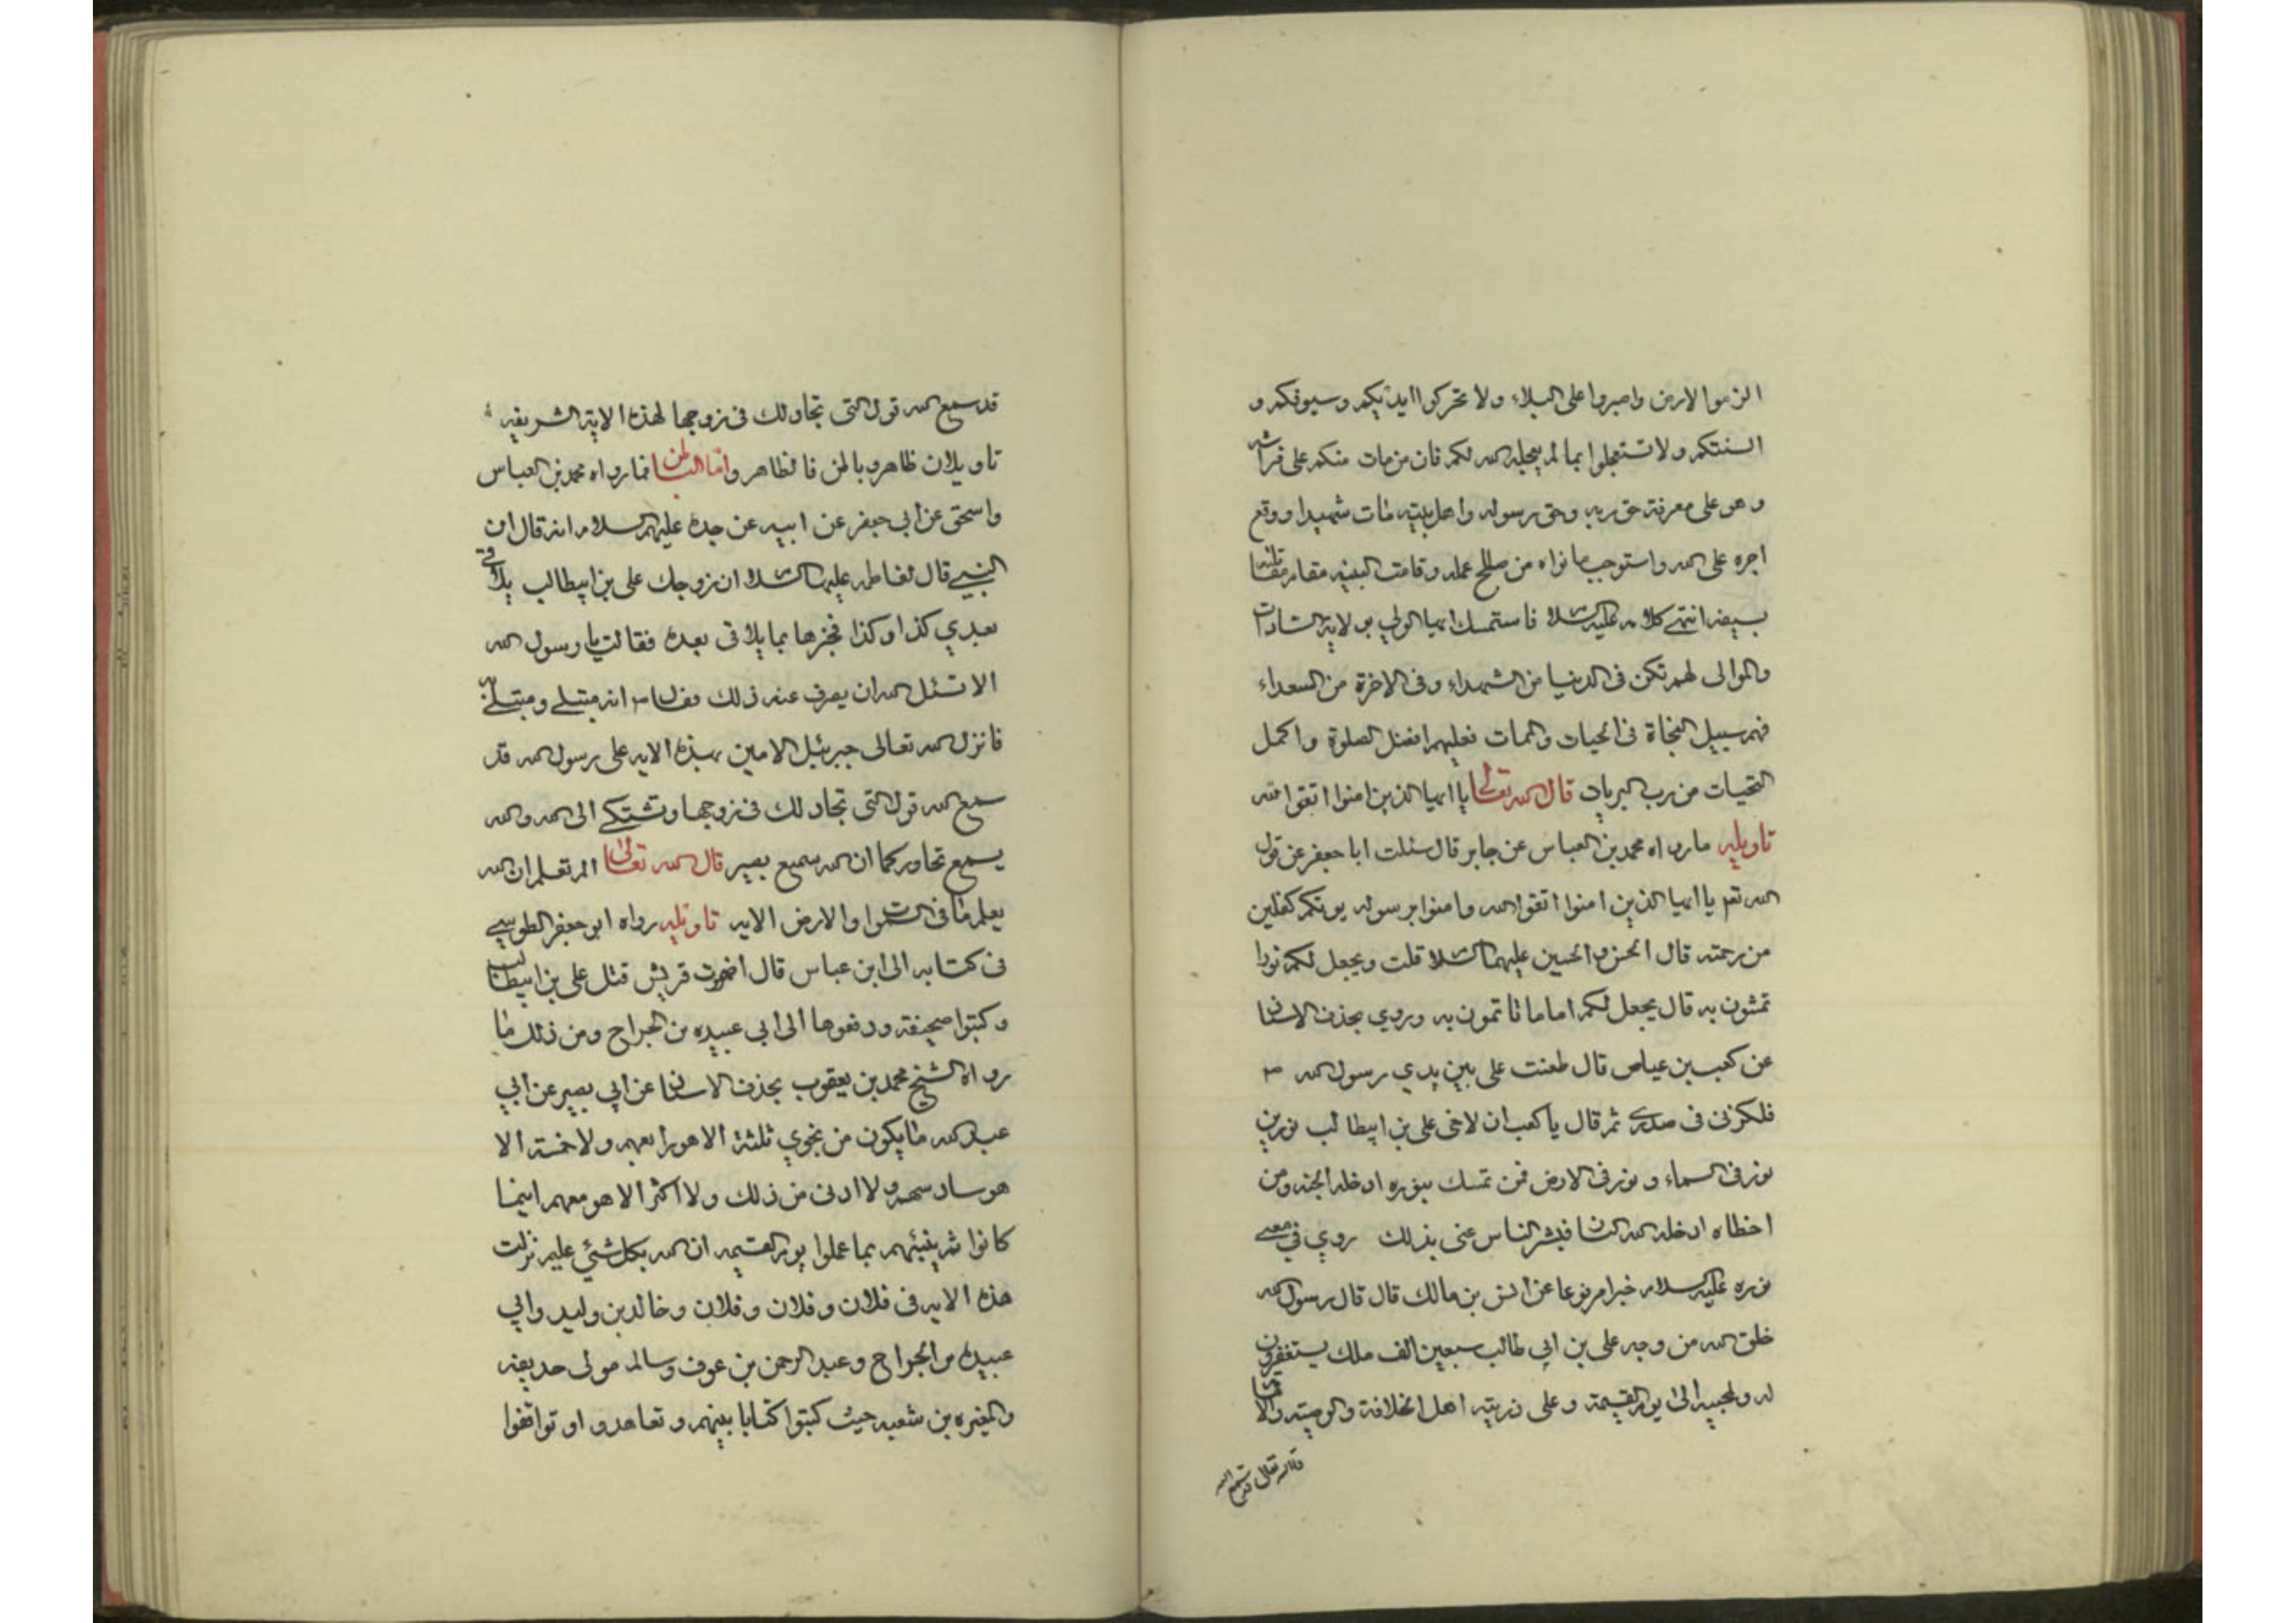 الزموا الارض واصبروا على البلاء ولا تحركوا ايديكم وسيوفكم و
السنتكم ولا تستعجلوا بما لم يعجله الله لكم فان من مات منكم على فراشه
وهو على معرفة حق ربه وحق رسوله واهل بيته مات شهيدا ووقع
اجره على الله واستوجب ما نواه من صالح عمله وقامت النية مقام مقاتلته
بسيفه انتهى كلامه عليه السلام فاستمسك ايها الولي بولاية السادات
والموالى لهم تكن فى الدنيا من الشهداء وفى الاخرة من السعداء
فهم سبيل النجاة فى الحيات والممات فعليهم افضل الصلوة واكمل
التحيات من رب البريات قال الله تعالى يا ايها الذين امنوا اتقوا الله
تاويله ما رواه محمد بن العباس عن جابر قال سئلت ابا جعفر عن قول
الله تع يا ايها الذين امنوا اتقوا الله وامنوا برسوله يوتكم كفلين
من رحمته قال الحسن والحسين عليهما السلام قلت ويجعل لكم نورا
تمشون به قال يجعل لكم اماما تاتمون به وروي بحذف الاسناد
عن كعب بن عياض قال طعنت على بين يدي رسول الله ص
فلكزنى فى صدرى ثم قال يا كعب ان لاخى على بن ابيطالب نورين
نور فى السماء ونور فى الارض فمن تمسك بنوره ادخله الجنه ومن
اخطاه ادخله الله النار فبشر الناس عنى بذلك روي في معنى
نوره عليه السلام خبرا مرفوعا عن انس بن مالك قال قال رسول الله
خلق الله من وجه على بن ابي طالب سبعين الف ملك يستغفرون
له ولمحبيه الى يوم القيمة وعلى ذريته اهل الخلافة والوصية والامامة
قال الله تعالى قد سمع الله
قد سمع الله قول التى تجادلك فى زوجها لهذه الاية الشريفه
تاويلان ظاهر وباطن فالظاهر واما الباطن فما رواه محمد بن العباس
واسحق عن ابي جعفر عن ابيه عن جده عليهم السلام انه قال ان
النبي قال لفاطمه عليها السلام ان زوجك على بن ابيطالب يلاقى
بعدي كذا وكذا فخبرها بما يلاقى بعده فقالت يا رسول الله
الا تسئل الله ان يصرف عنه ذلك فقال ص انه مبتلى ومبتلى به
فانزل الله تعالى جبرئيل الامين بهذه الايه على رسول الله قد
سمع الله قول التى تجادلك فى زوجها وتشتكى الى الله والله
يسمع تحاوركما ان الله سميع بصير قال الله تعالى الم تعلم ان الله
يعلم ما فى السموات والارض الايه تاويله رواه ابو جعفر الطوسي
فى كتابه الى ابن عباس قال اضمرت قريش قتل على بن ابيطالب
وكتبوا صحيفة ودفعوها الى ابي عبيده بن الجراح ومن ذلك ما
رواه الشيخ محمد بن يعقوب بحذف الاسناد عن ابي بصير عن ابي
عبد الله ما يكون من نجوي ثلثة الا هو رابعهم ولا خمسة الا
هو سادسهم ولا ادنى من ذلك ولا اكثر الا هو معهم اينما
كانوا ثم ينبئهم بما عملوا يوم القيمه ان الله بكل شئ عليم نزلت
هذه الايه فى فلان وفلان وفلان وخالد بن وليد وابي
عبيده بن الجراح وعبد الرحمن بن عوف وسالم مولى حذيفه
والمغيره بن شعبه حيث كتبوا كتابا بينهم وتعاهدوا وتوافقوا